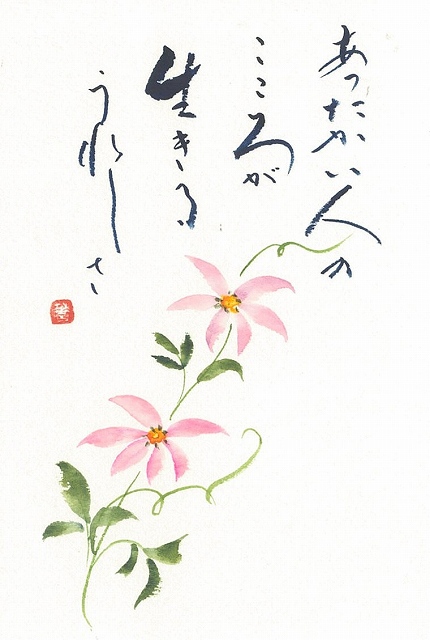 あったかい人の
こころが
生きる
うれしさ